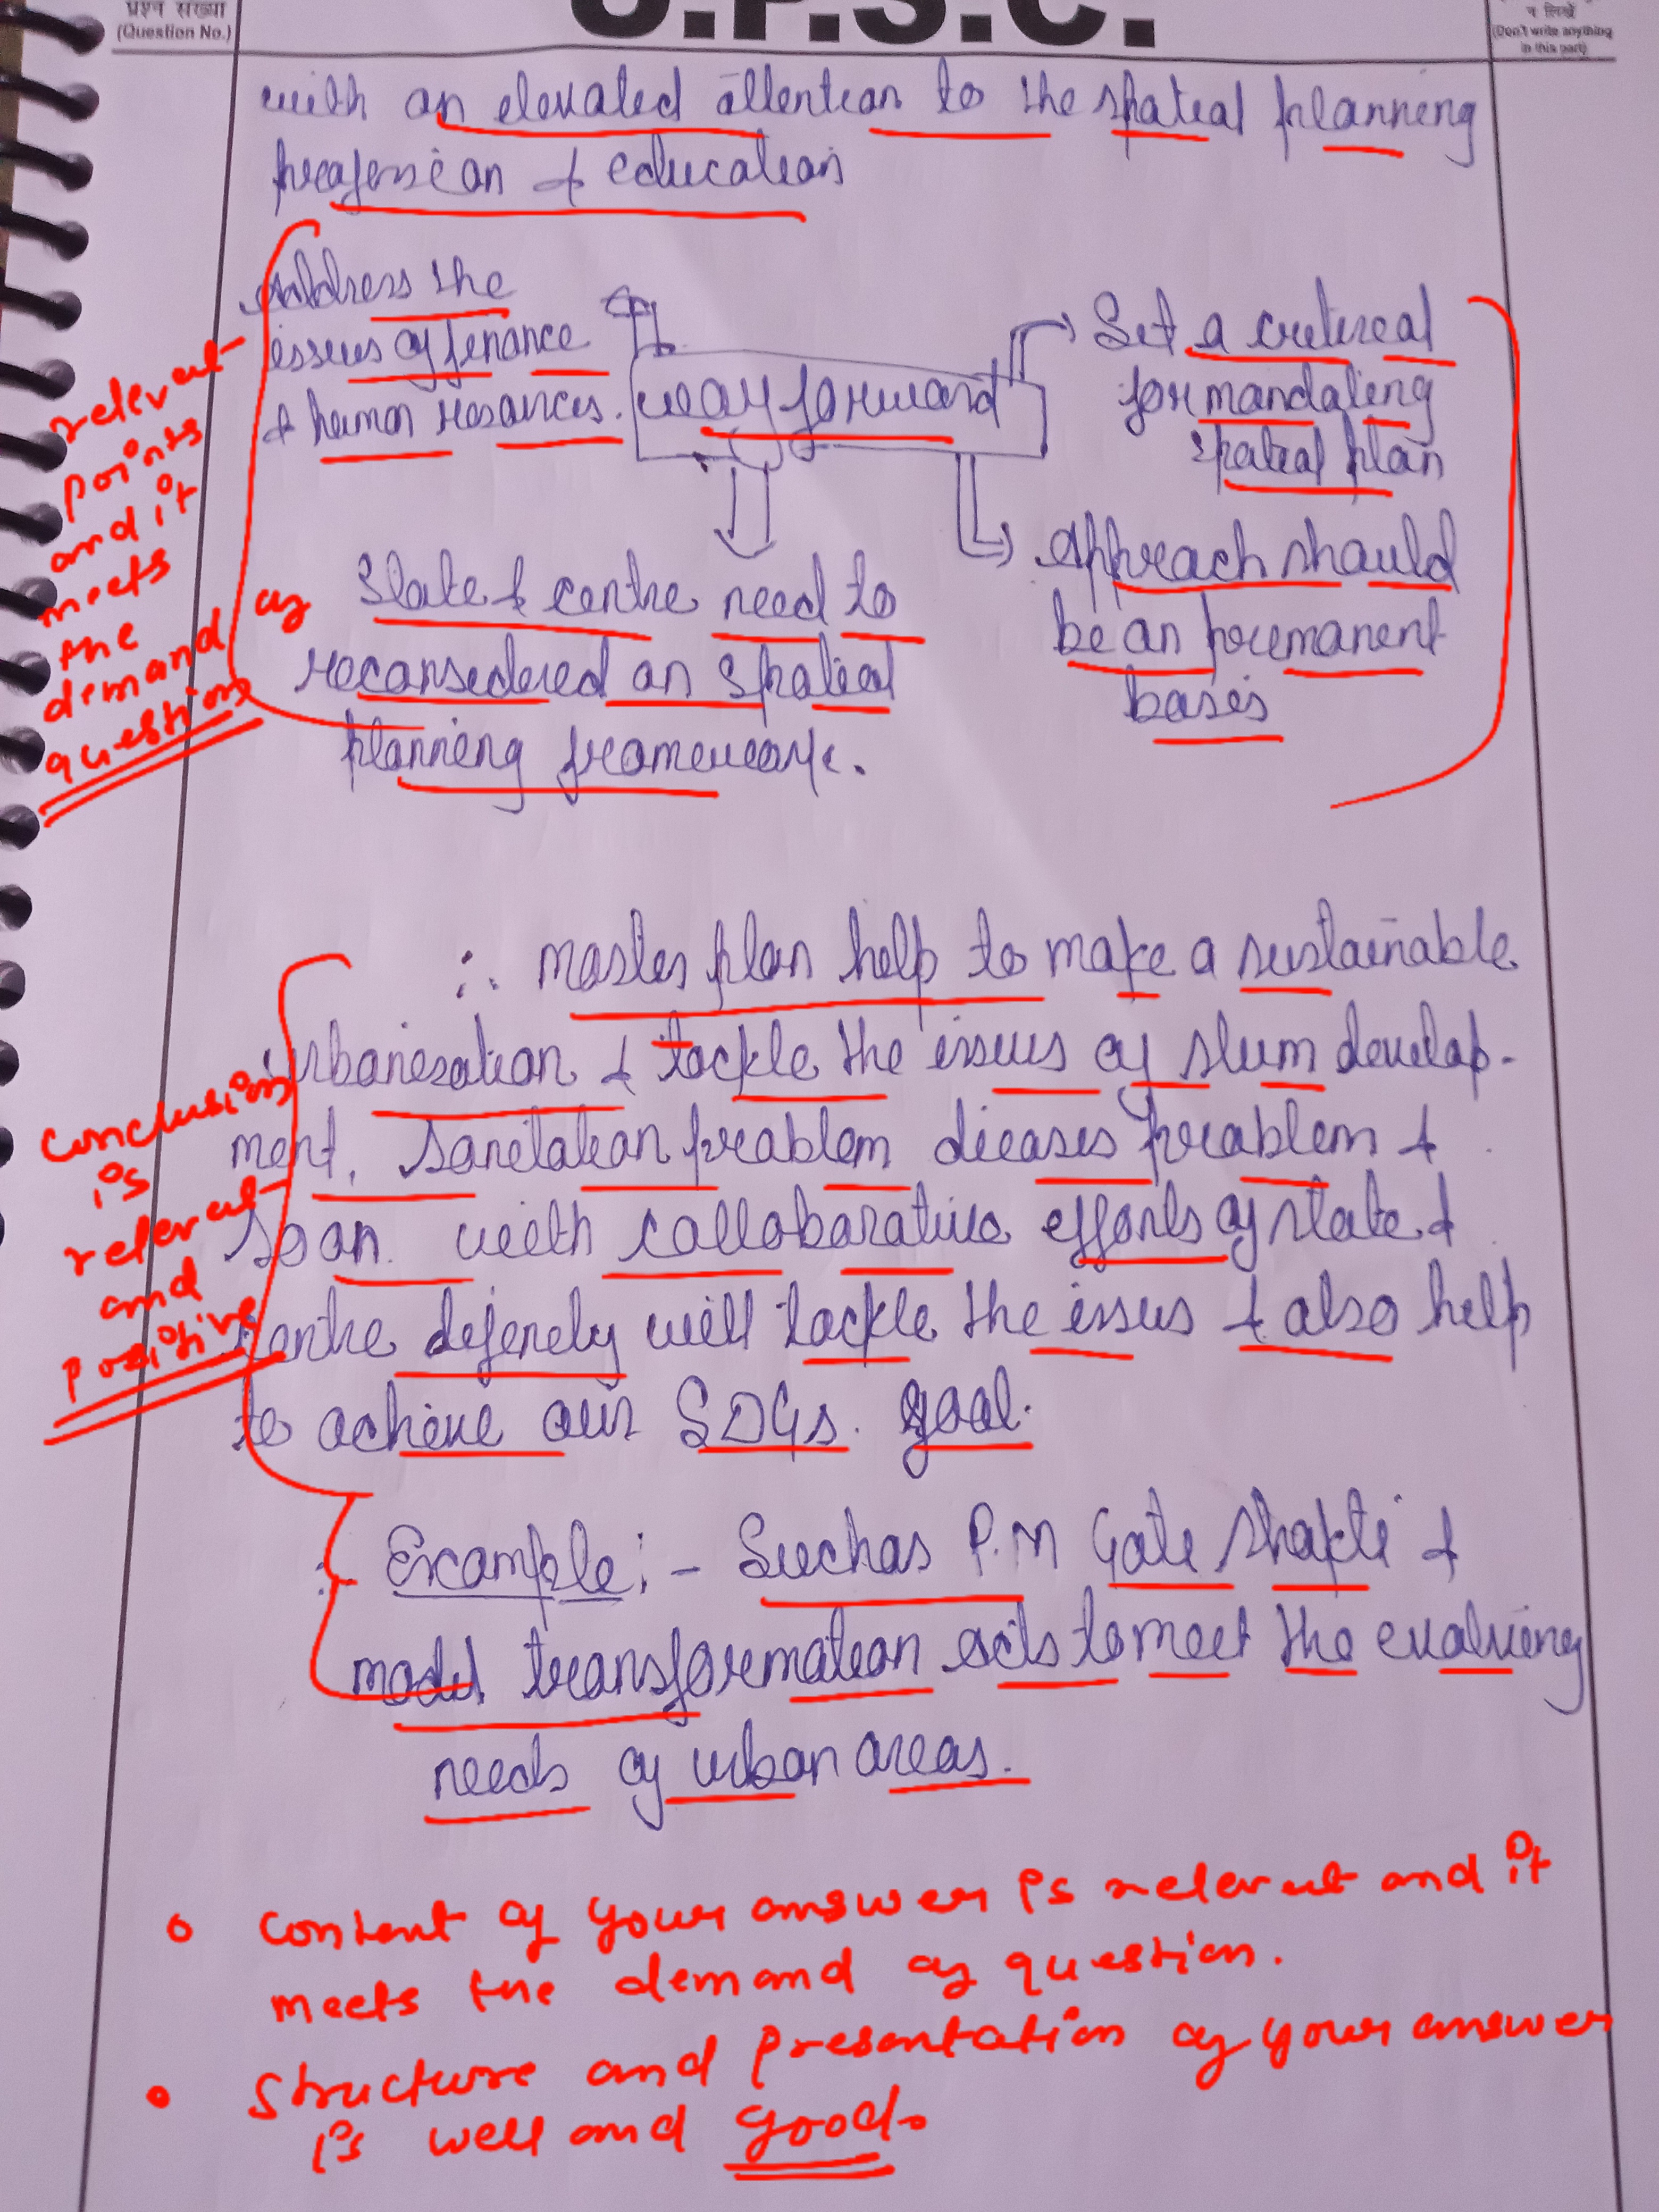 प्रश्न संख्या
(Question No.)
U.P.S.C.
न लिखें
(Don't write anything
in this part)
with an elevated attention to the spatial planning
profession & education
Address the
issues of finance
& human resources.
way forward
Set a critereal
for mandating
spatial plan
State & centre need to
reconsidered on spatial
planning framework.
Approach should
be an premanent
bases
relevant
points
and it
meets
the
demand of
question
∴ master plan help to make a sustainable
urbanisation & tackle the issues of slum develop-
ment, sanitation problem dieases problem &
so on. with collaborative efforts of state &
centre definely will tackle the issues & also help
to achieve our SDGs. goal.
conclusion
is
relevant
and
positive
Example :- Such as P.M Gate Shakti &
model transformation acts to meet the evolving
needs of urban areas.
content of your answer is relevant and it
meets the demand of question.
structure and presentation of your answer
is well and good.